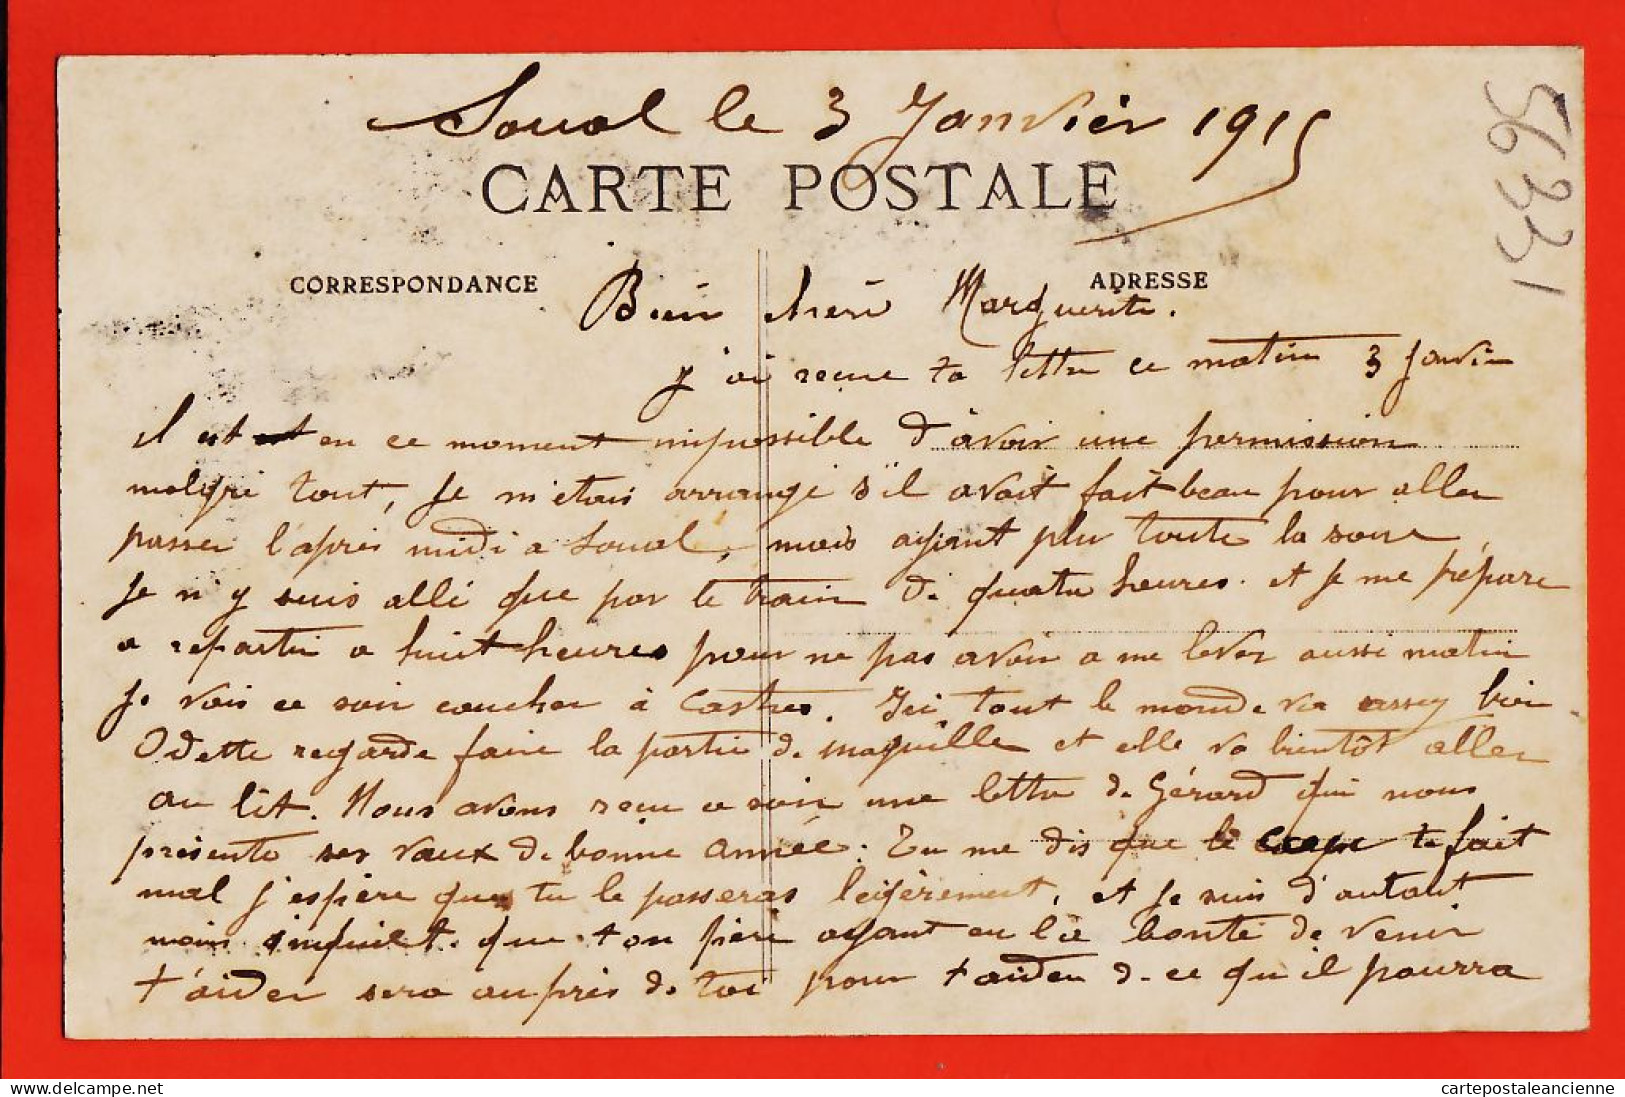 Soual le 3 Janvier 1915
CARTE POSTALE
56331
CORRESPONDANCE
ADRESSE
Bien chère Marguerite.
J'ai reçue ta lettre ce matin 3 Janvier
il est en ce moment impossible d'avoir une permission
malgré tout, Je m'étais arrangé s'il avait fait beau pour aller
passer l'après midi a Soual, mais ayant plu toute la soirée,
Je n'y suis allé que par le train de quatre heures. et Je me prépare
a repartir a huit heures pour ne pas avoir a me lever aussi matin
Je vais ce soir coucher à Castres. Ici tout le monde va assez bien
Odette regarde faire la partie de maquille et elle va bientôt aller
au lit. Nous avons reçu ce soir une lettre de Gérard qui nous
présente ses vœux de bonne année. Tu me dis que le te fait
mal j'espère que tu le passeras légèrement, et Je suis d'autant
moins inquiet. que ton père ayant eu la bonté de venir
t'aider sera auprès de toi pour t'aider de ce qu'il pourra
cartepostaleancienne